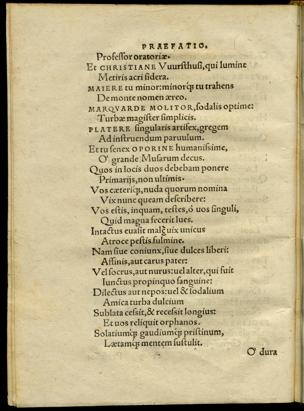 PRAEFATIO.
Professor oratoriæ.
Et CHRISTIANE Vuursthusi, qui lumine
Metiris acri sidera.
MAIERE tu minor: minorq́; tu trahens
De monte nomen æreo.
MARQVARDE MOLITOR, sodalis optime:
Turbæ magister simplicis.
PLATERE singularis artifex, gregem
Ad instruendum paruulum.
Et tu senex OPORINE humanissime,
O' grande Musarum decus.
Quos in locis duos debebam ponere
Primarijs, non ultimis.
Vos cæteriq́;, nuda quorum nomina
Vix nunc queam describere:
Vos estis, inquam, testes, ó uos singuli,
Quid magna fecerit lues.
Intactus eualit malè uix unicus
Atroce pestis fulmine.
Nam siue coniunx, siue dulces liberi:
Affinis, aut carus pater:
Vel socrus, aut nurus: uel alter, qui fuit
Iunctus propinquo sanguine:
Dilectus aut nepos: uel & sodalium
Amica turba dulcium
Sublata cessit, & recessit longius:
Et uos reliquit orphanos.
Solatiumq́; gaudiumq́; pristinum,
Lætamq́; mentem sustulit.
O' dura